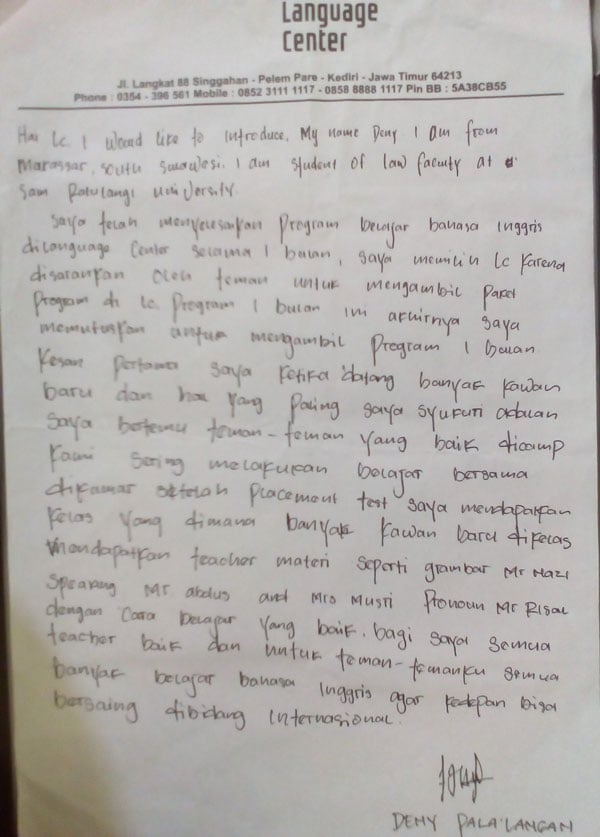 Language
Center
Jl. Langkat 88 Singgahan - Pelem Pare - Kediri - Jawa Timur 64213
Phone : 0354 - 396 561 Mobile : 0852 3111 1117 - 0858 8888 1117 Pin BB : 5A38CB55
Hai Lc. I would like to introduce, My name Deny I am from
Marassar, south Surawesi. I am student of law faculty at
Sam Ratulangi University.
Saya telah menyelesaikan Program belajar bahasa Inggris
di Language Center selama 1 bulan, saya memilih Lc Karena
disarankan oleh teman untuk mengambil paket
Program di Lc. Program 1 bulan ini akhirnya saya
memutuskan untuk mengambil Program 1 bulan
Kesan Pertama saya ketika datang banyak kawan
baru dan hal yang paling saya syukuri adalah
saya bertemu teman-teman yang baik dicamp
Kami sering melakukan belajar bersama
dikamar setelah Placement test saya mendapatkan
Kelas yang dimana banyak kawan baru dikelas
mendapatkan teacher materi seperti grambar Mr Nazi
Speaking Mr abdus and Mrs Musri Pronoun Mr Risal
dengan cara belajar yang baik. bagi saya semua
teacher baik dan untuk teman-temanku semua
banyak belajar bahasa Inggris agar kedepan bisa
bersaing dibidang Internasional.
DENY PALA'LANGAN